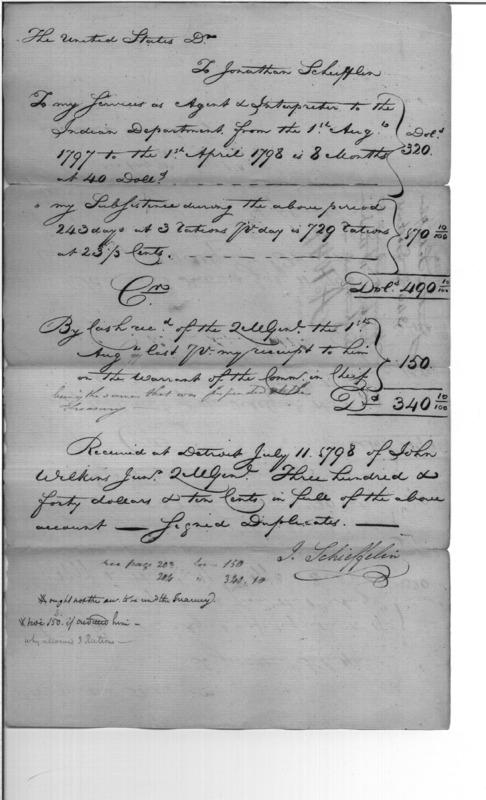 The United States Dr
To Jonathan Schiefflin
To my Services as Agent & Interpreter to the
Indian Department, from the 1st Augt
1797 to the 1st April 1798 is 8 Months
at 40 Dolls.
Dols 320.
my Subsistence during the above period
243 days at 3 rations pr day is 729 rations
at 23⅓ Cents.
170 10/100
Dols 490 10/100
Cr
By Cash recd of the 2MGenl. the 1st
Augt last pr my receipt to him
on the Warrant of the Comm. in Chief
150.
being the warrant that was at the
treasury
Ds 340 10/100
Received at Detroit July 11. 1798 of John
Wilkins Junr. 2MGenl. Three hundred &
forty dollars & ten Cents, in full of the above
account — Signed Duplicates. —
J. Schieffelin
see page 203 for 150
204 " 340.10
ought not the sum to be in the Treasury.
150. if credited him —
why allowed 3 Rations —